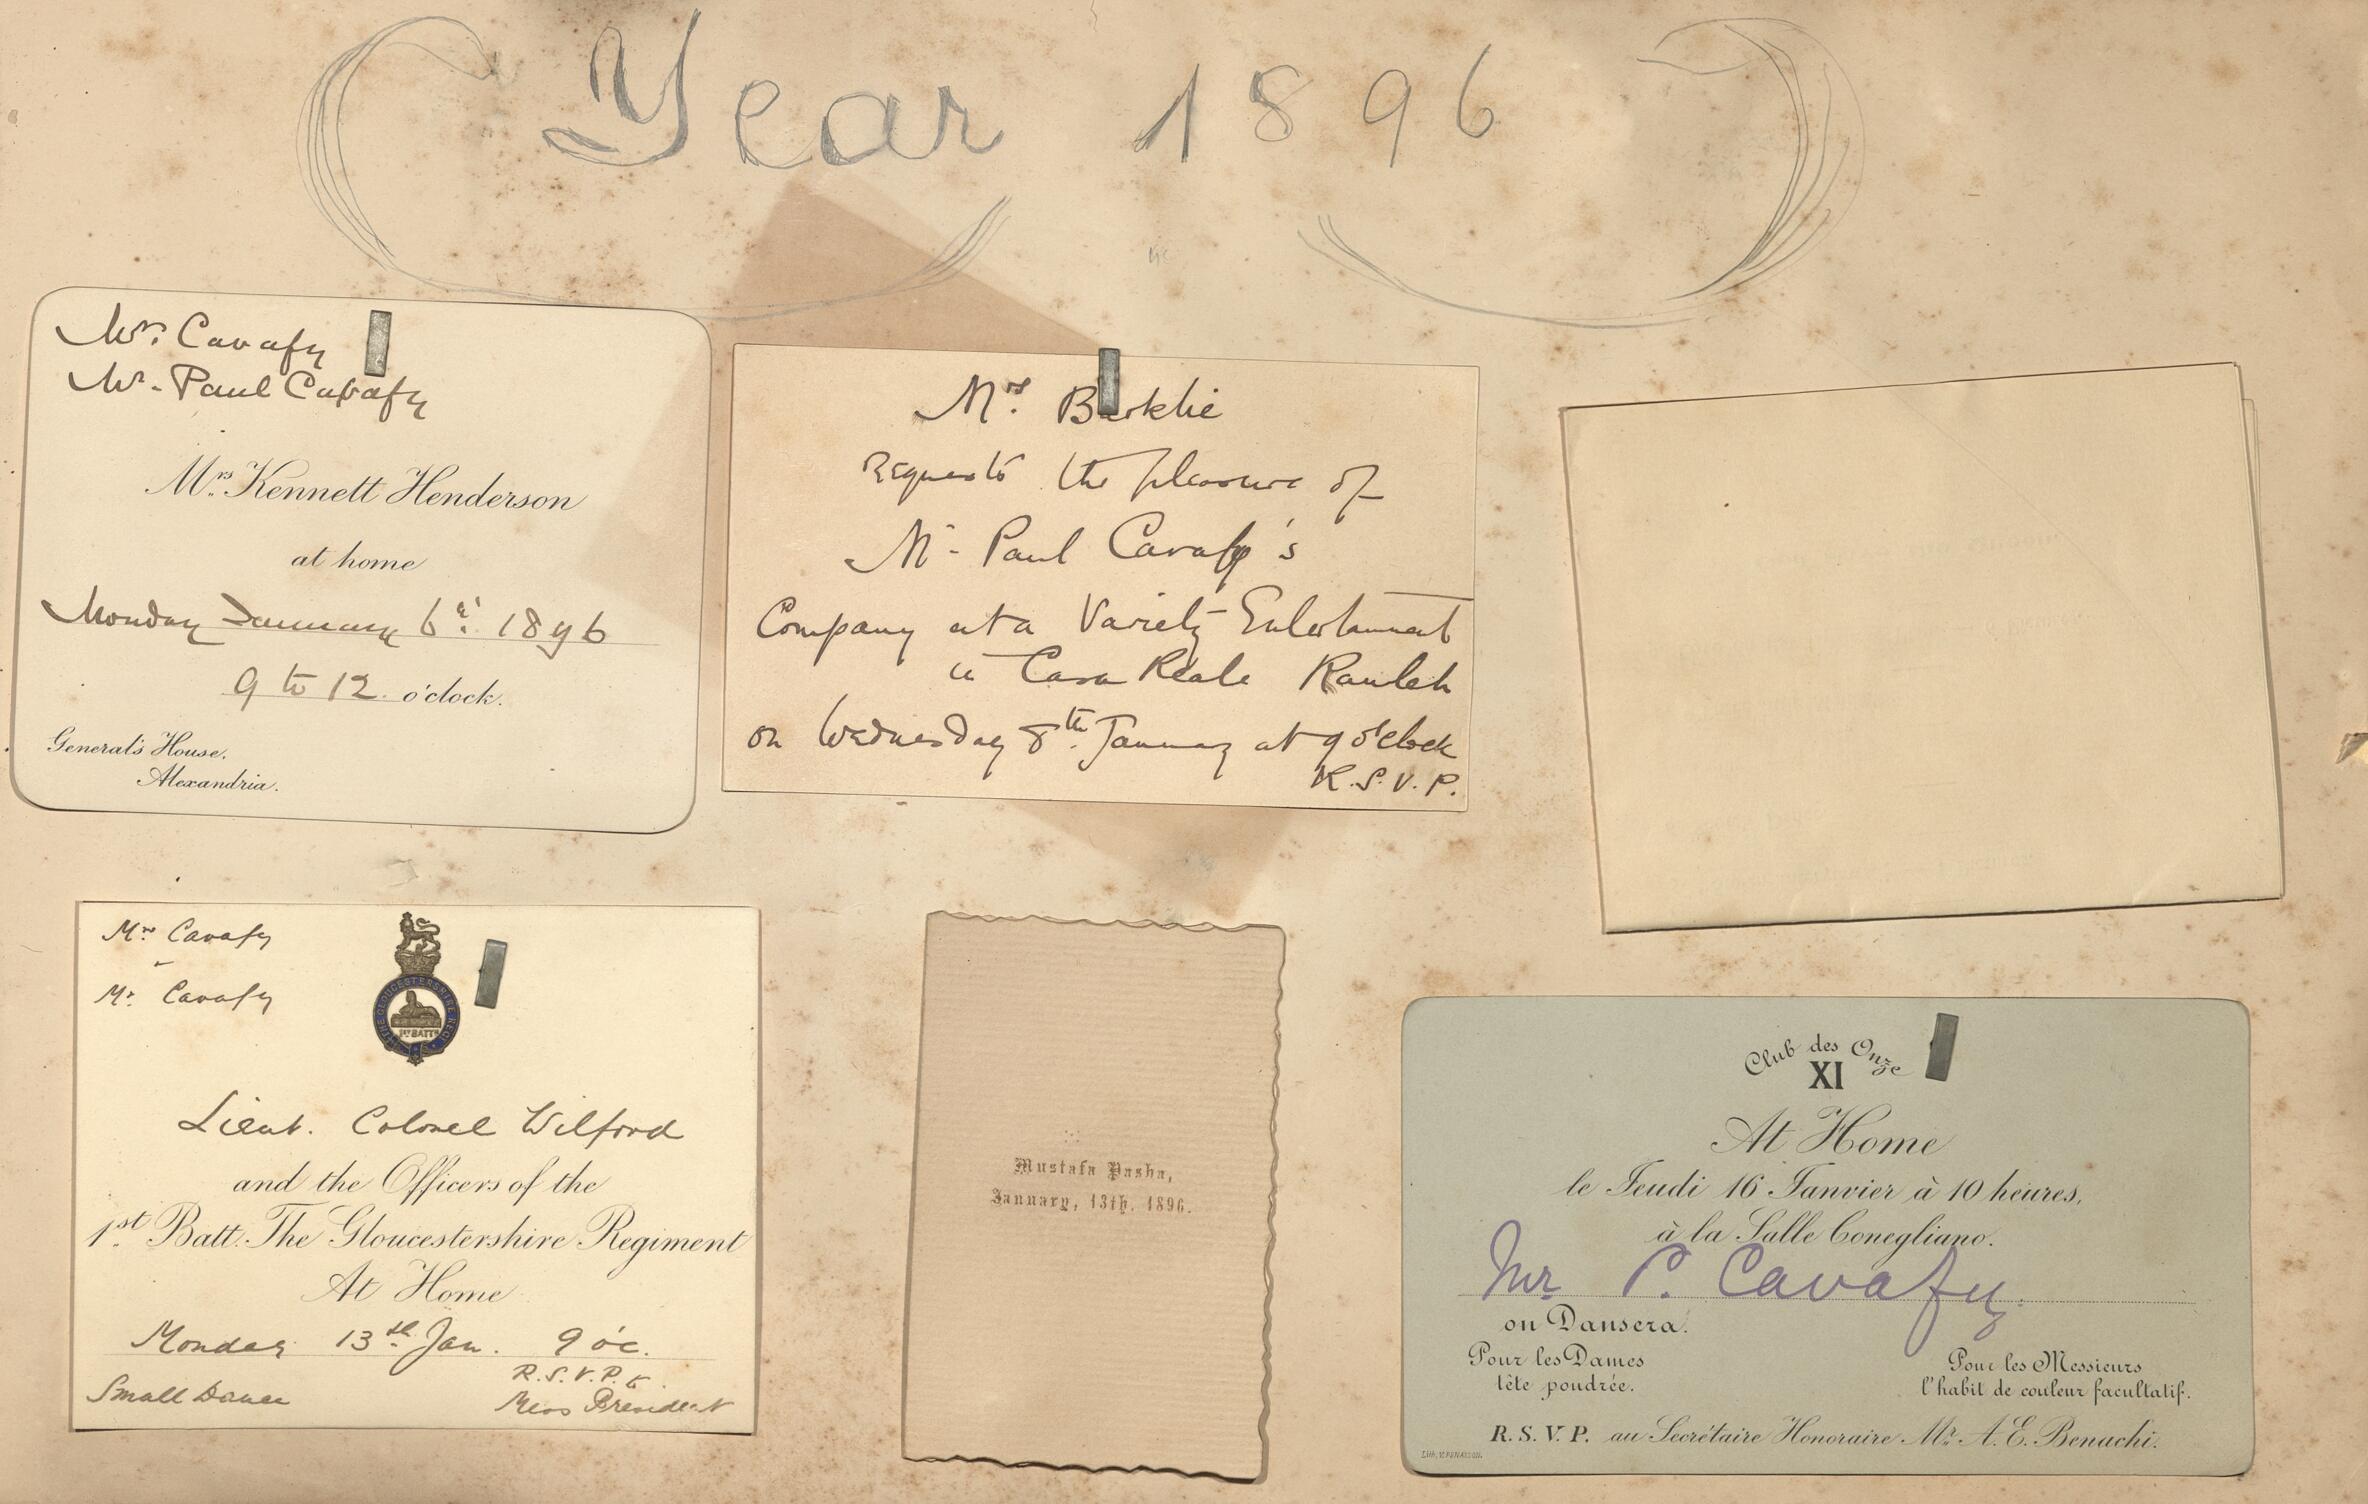 Year 1896
Mrs. Cavafy
Mr. Paul Cavafy
Mrs. Kennett Henderson
at home
Monday January 6th. 1896
9 to 12 o'clock.
General's House,
Alexandria.
Mrs. Barklie
requests the pleasure of
Mr. Paul Cavafy's
Company at a Variety Entertainment
at Casa Reale Ramleh
on Wednesday 8th. January at 9 o'clock
R.S.V.P.
Mrs Cavafy
Mr. Cavafy
THE GLOUCESTERSHIRE REGT
1ST BATTN
Lieut. Colonel Wilford
and the Officers of the
1st Batt. The Gloucestershire Regiment
At Home
Monday 13th. Jan. 9 o'c.
R.S.V.P. to
Small Dance Mess President
Mustafa Pasha,
January, 13th. 1896.
Club des Onze
XI
At Home
le Jeudi 16 Janvier à 10 heures,
à la Salle Conegliano.
Mr P. Cavafy.
on Dansera.
Pour les Dames
tête poudrée.
Pour les Messieurs
l'habit de couleur facultatif.
R.S.V.P. au Secrétaire Honoraire Mr. A. E. Benachi.